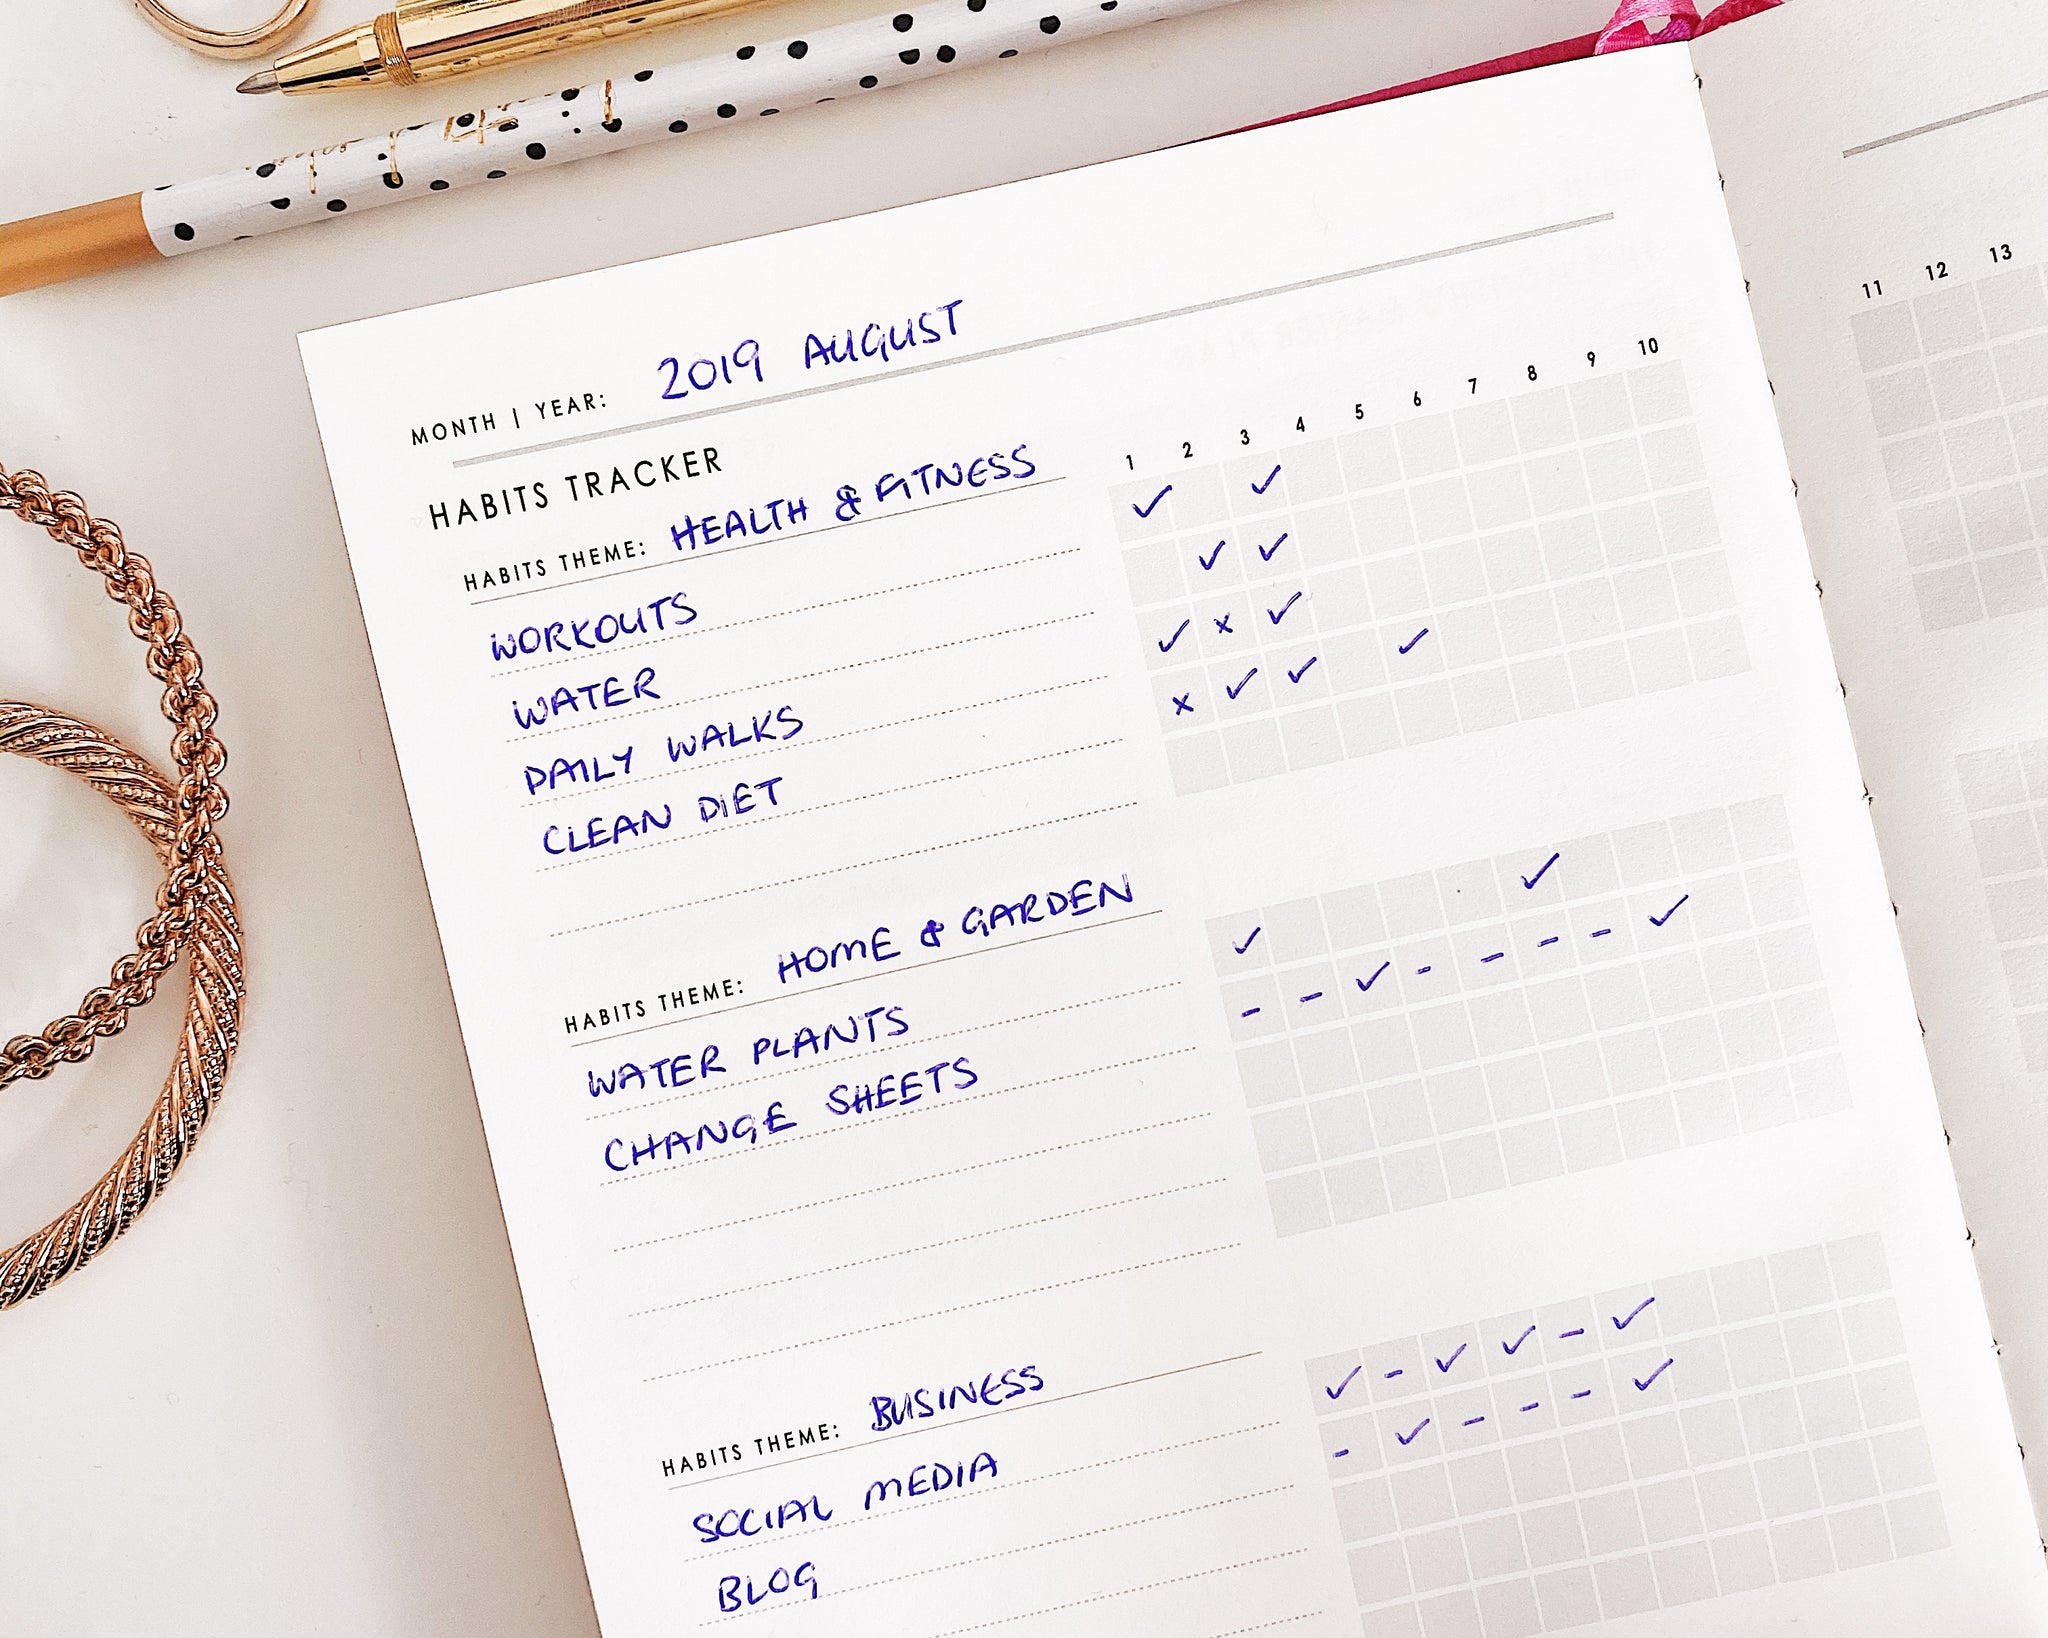 MONTH | YEAR: 2019 AUGUST
HABITS TRACKER
1 2 3 4 5 6 7 8 9 10
11 12 13
HABITS THEME: HEALTH & FITNESS
✓ ✓
WORKOUTS
✓ ✓
WATER
✓ x ✓
DAILY WALKS
x ✓ ✓ ✓
CLEAN DIET
HABITS THEME: HOME & GARDEN
✓ ✓
WATER PLANTS
- - ✓ - - - - ✓
CHANGE SHEETS
HABITS THEME: BUSINESS
✓ - ✓ ✓ - ✓
SOCIAL MEDIA
- ✓ - - - ✓
BLOG